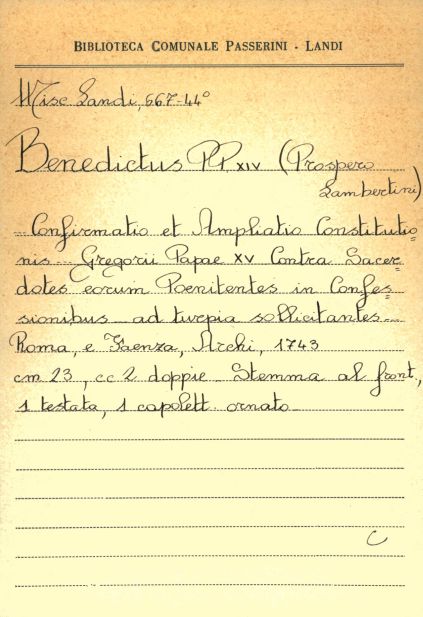 BIBLIOTECA COMUNALE PASSERINI - LANDI
Misc Landi, 667-44°
Benedictus PP XIV (Prospero
Lambertini)
... Confirmatio et Ampliatio Constitutio-
nis ... Gregorii Papae XV Contra Sacer-
dotes eorum Poenitentes in Confes-
sionibus ... ad turpia sollicitantes ...
Roma, e Faenza, Archi, 1743
cm 23, cc 2 doppie. Stemma al front.,
1 testata, 1 capolett. ornato
C